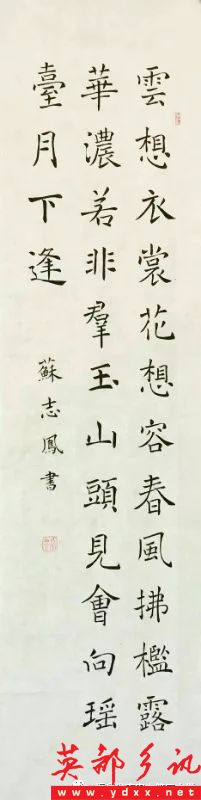 雲想衣裳花想容春風拂檻露
華濃若非羣玉山頭見會向瑶
臺月下逢
蘇志鳳書
英都乡讯
www.ydxx.net